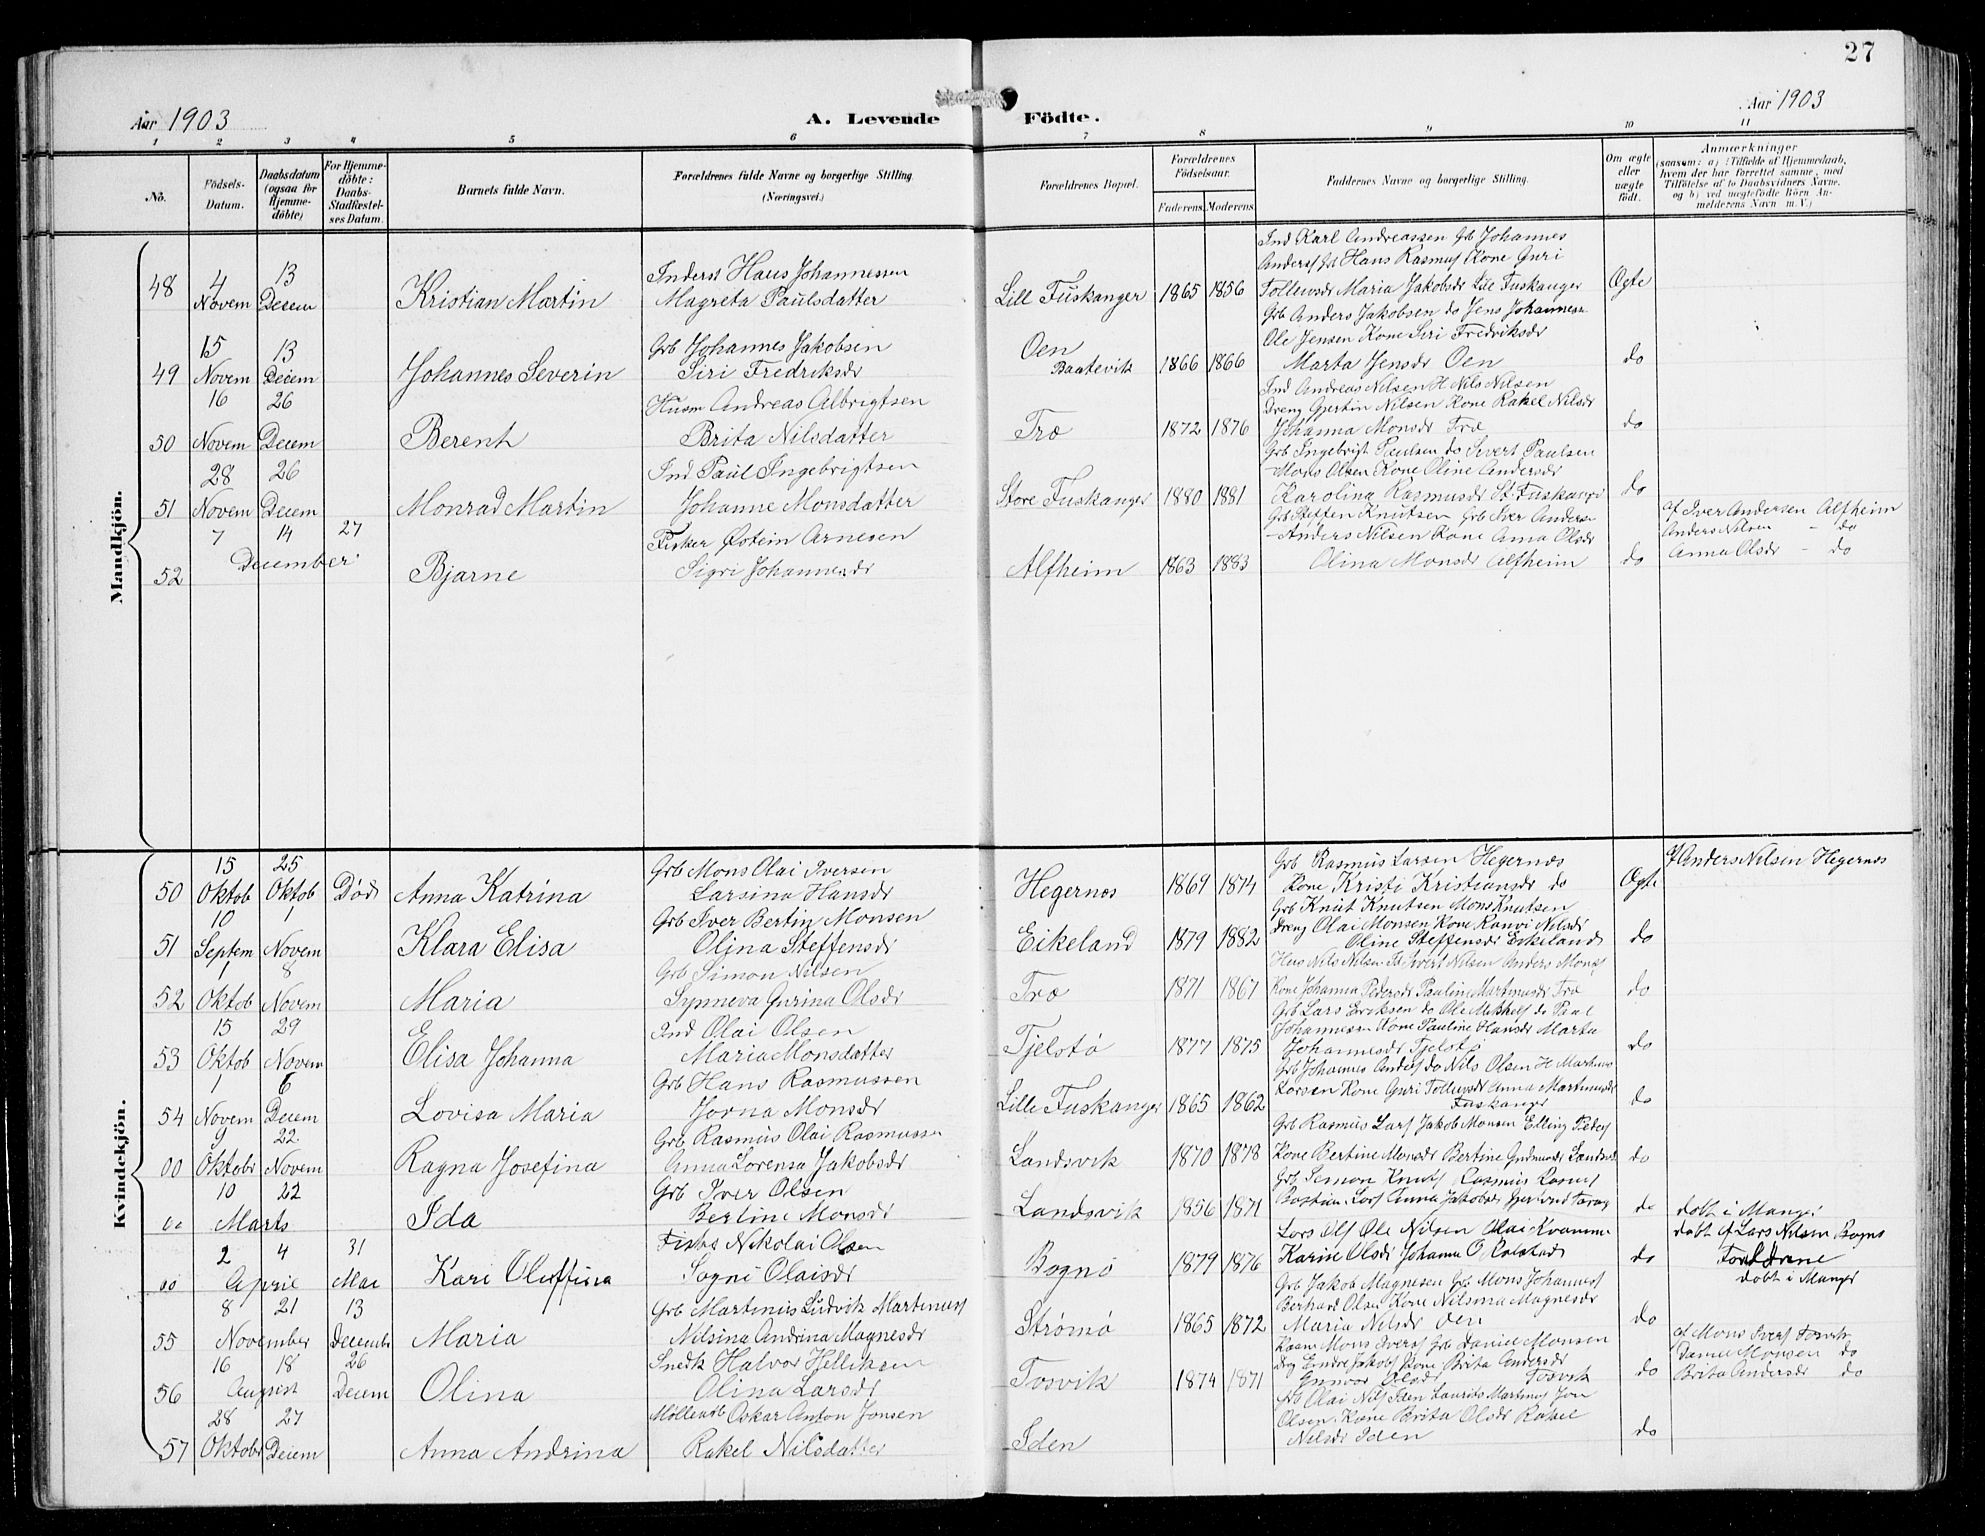 27
Aar 1903
A. Levende Födte.
Aar 1903
1 2 3 4 5 6 7 8 9 10 11
No.
Födsels-Datum.
Daabsdatum (ogsaa for Hjemme-döbte)
For Hjemme-döbte: Daabs-Stadfæstel-ses Datum.
Barnets fulde Navn.
Forældrenes fulde Navne og borgerlige Stilling.
(Næringsvei.)
Forældrenes Bopæl.
Forældrenes Födselsaar.
Faderens. Moderens.
Faddernes Navne og borgerlige Stilling.
Om ægte eller uægte födt.
Anmærkninger
(saasom: a) i Tilfælde af Hjemmedaab, hvem der har forrettet samme, med Tilföielse af to Daabsvidners Navne. og b) ved uægtefödte Börn An-melderens Navn m. V.)
Mandkjön.
48 4 Novem 13 Decem Kristian Martin
Inderst Hans Johannessen
Magreta Paulsdatter
Lill Fuskanger 1865 1856
Ind Karl Andreassen Grb Johannes
Anders Hans Rasmus Kone Guri
Tollevsdr Maria Jakobsdr Lill Fuskanger
Ægte
49 15 Novem 13 Decem Johannes Severin
Grb Johannes Jakobsen
Siri Fredriksdr
Oen Baatevik 1866 1866
Grb Anders Jakobsen do Jens Johannesn
Ole Jensen Kone Siri Fredriksdr
Marta Jensdr Oen
do
50 16 Novem 26 Decem Berent
Husm Andreas Albrigtsen
Brita Nilsdatter
Træ 1872 1876
Ind Andreas Nilsen H Nils Nilsen
Dreng Gjertin Nilsen Kone Rakel Nilsdr
Johanna Monsdr Træ
do
51 28 Novem 26 Decem Monrad Martin
Ind Paul Ingebrigtsen
Johanne Monsdatter
Store Fuskanger 1880 1881
Grb Ingebrigt Paulsen do Sivert Paulsen
Mons Olsen Kone Oline Andersdr
Karolina Rasmusdr St. Fuskanger
do
52 7 14 December 27 Bjarne
Fisker Østein Arnesen
Sigri Johannesdr
Alfheim 1863 1883
Grb Steffen Knutsen Grb Iver Anderse
Anders Nilsen Kone Anna Olsdr
Olina Monsdr Alfheim
do
af Iver Andersen Alfheim
Anders Nilsen - do
Anna Olsdr - do
Kvindekjön.
50 15 Oktob 25 Oktob Død Anna Katrina
Grb Mons Olai Iversen
Larsina Hansdr
Hegernæs 1869 1874
Grb Rasmus Larsen Hegernæs
Kone Kristi Kristiansdr do
Ægte
af Anders Nilsen Hegernæs
51 10 Septem 1 Novem Klara Elisa
Grb Iver Bertin Monsen
Olina Steffensdr
Eikeland 1879 1882
Grb Knut Knutsen Mons Knutsen
Dreng Olai Monsen Kone Ranvi Nilsdr
Oline Steffensdr Eikeland
do
52 1 Oktob 8 Novem Maria
Grb Simon Nilsen
Synneva Gurina Olsdr
Træ 1871 1867
Nils Nilsen Sivert Nilsen Anders Mons
Kone Johanna Pedersdr Pauline Martinusdr Træ
do
53 15 Oktob 29 Novem Elisa Johanna
Ind Olai Olsen
Maria Monsdatter
Tjelstø 1877 1875
Grb Lars Eriksen do Ole Mikkels do Paul
Johannesen Kone Pauline Hansdr Marta
Johannesdr Tjelstø
do
54 1 Novem 6 Decem Lovisa Maria
Grb Hans Rasmussen
Jorna Monsdr
Lille Fuskanger 1865 1862
Grb Johannes Anders do Nils Olsen H Martinus
Larsen Kone Guri Tollevsdr Anna Martinusdr
Fuskanger
do
00 9 Oktobr 22 Novem Ragna Josefina
Grb Rasmus Olai Rasmussen
Anna Lorensa Jakobsdr
Landsvik 1870 1878
Grb Rasmus Lars Jakob Monsen Elling Peders
Kone Bertine Monsdr Bertine Gudmunds Landsvik
do
00 10 22 Marts Ida
Grb Iver Olsen
Bertine Monsdr
Landsvik 1856 1871
Grb Simon Knuts Rasmus Rasmus
Bastian Lars Anna Jakobsdr
do
døbt i Manger
00 2 4 April 31 Mai Kari Oluffina
Nikolai Olsen
Sogni Olaisdr
Bognø 1879 1876
Lars Ols Ole Nilsen Olai Kvamme
Karine Olsdr Johanna O
do
døbt af Lars Nilsen Bognø
Forældrene
døbt i Manger
55 8 21 November 13 Decembr Maria
Grb Martinus Ludvik Martinus
Nilsina Andrina Magnesdr
Strømø 1865 1872
Grb Jakob Magnesen Grb Mons Johannes
Berhard Olsen Kone Nilsina Magnesdr
Maria Nilsdr Oen
do
56 16 18 August 26 Decem Olina
Snedk Halvor Helliksen
Olina Larsdr
Tosvik 1874 1871
Mons Ivers Grb Daniel Monsen
Drg Endre Jakobs Kone Brita Andersdr
Gunvor Olsdr Tosvik
do
af Mons Ivers Tosvik
Daniel Monsen do
Brita Andersdr do
57 28 Oktobr 27 Decem Anna Andrina
Møllearb Oskar Anton Jonsen
Rakel Nilsdatter
Iden
Grb Olai Nils Iden Laurits Martinus Jon
Olsen Kone Brita Olsdr Rakel
Nilsdr Iden
do